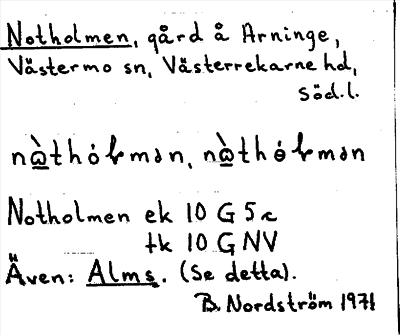 Notholmen, gård å Arninge,
Västermo sn, Västerrekarne hd,
Söd.l.
Notholmen ek 10 G 5c
tk 10 G NV
Även: Alms. (Se detta).
B. Nordström 1971